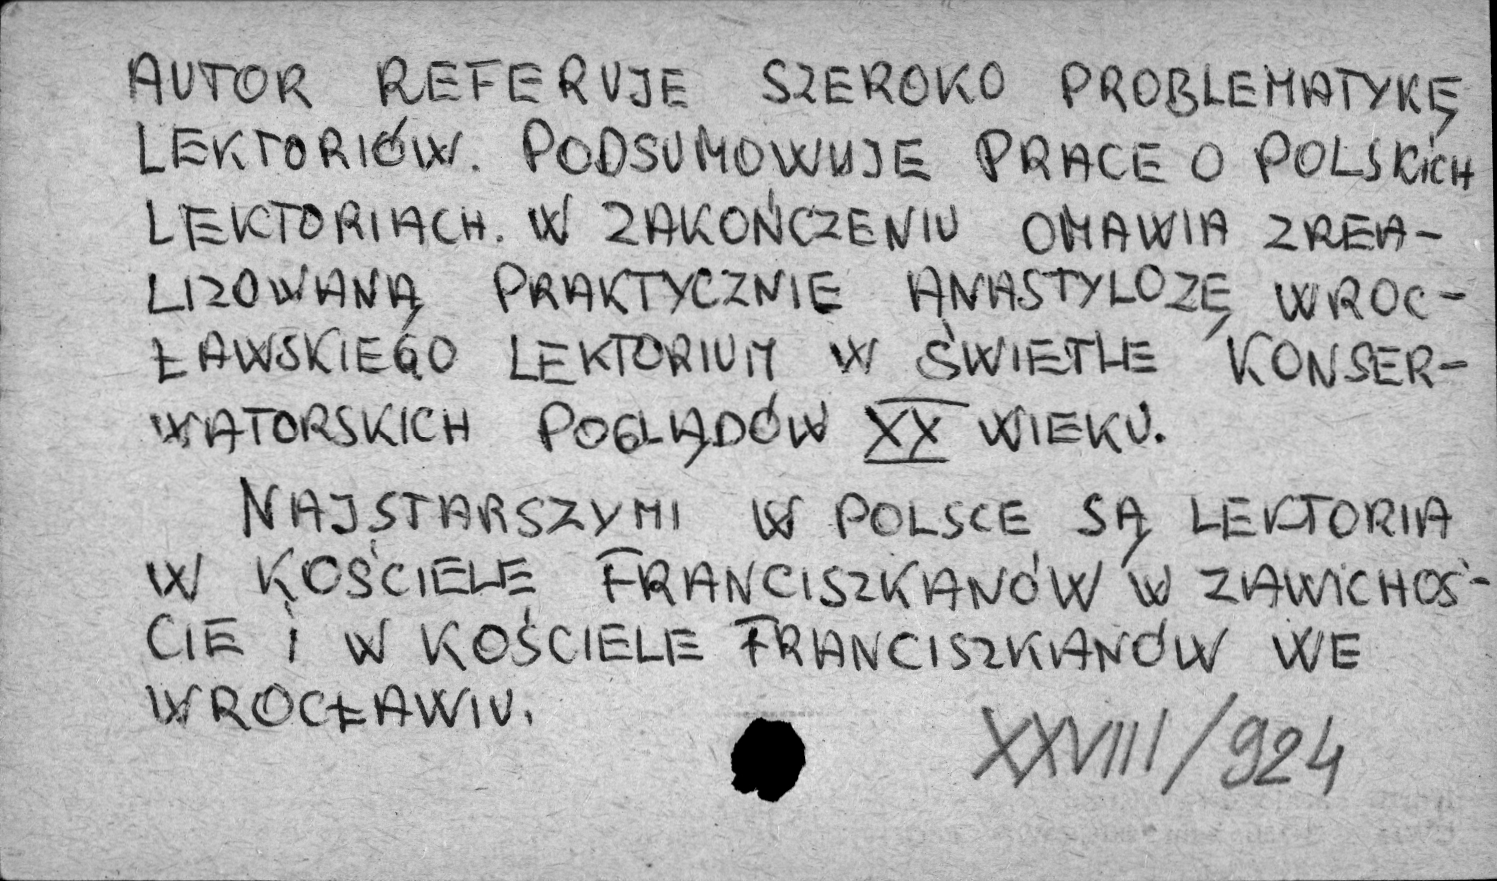 AUTOR REFERUJE SZEROKO PROBLEMATYKĘ
LEKTORIÓW. PODSUMOWUJE PRACE O POLSKICH
LEKTORIACH. W ZAKOŃCZENIU OMAWIA ZREA-
LIZOWANĄ PRAKTYCZNIE ANASTYLOZĘ WROC-
ŁAWSKIEGO LEKTORIUM W ŚWIETLE KONSER-
WATORSKICH POGLĄDÓW XX WIEKU.
NAJSTARSZYMI W POLSCE SĄ LEKTORIA
W KOŚCIELE FRANCISZKANÓW W ZAWICHOŚ-
CIE I W KOŚCIELE FRANCISZKANÓW WE
WROCŁAWIU.
XXVIII/924